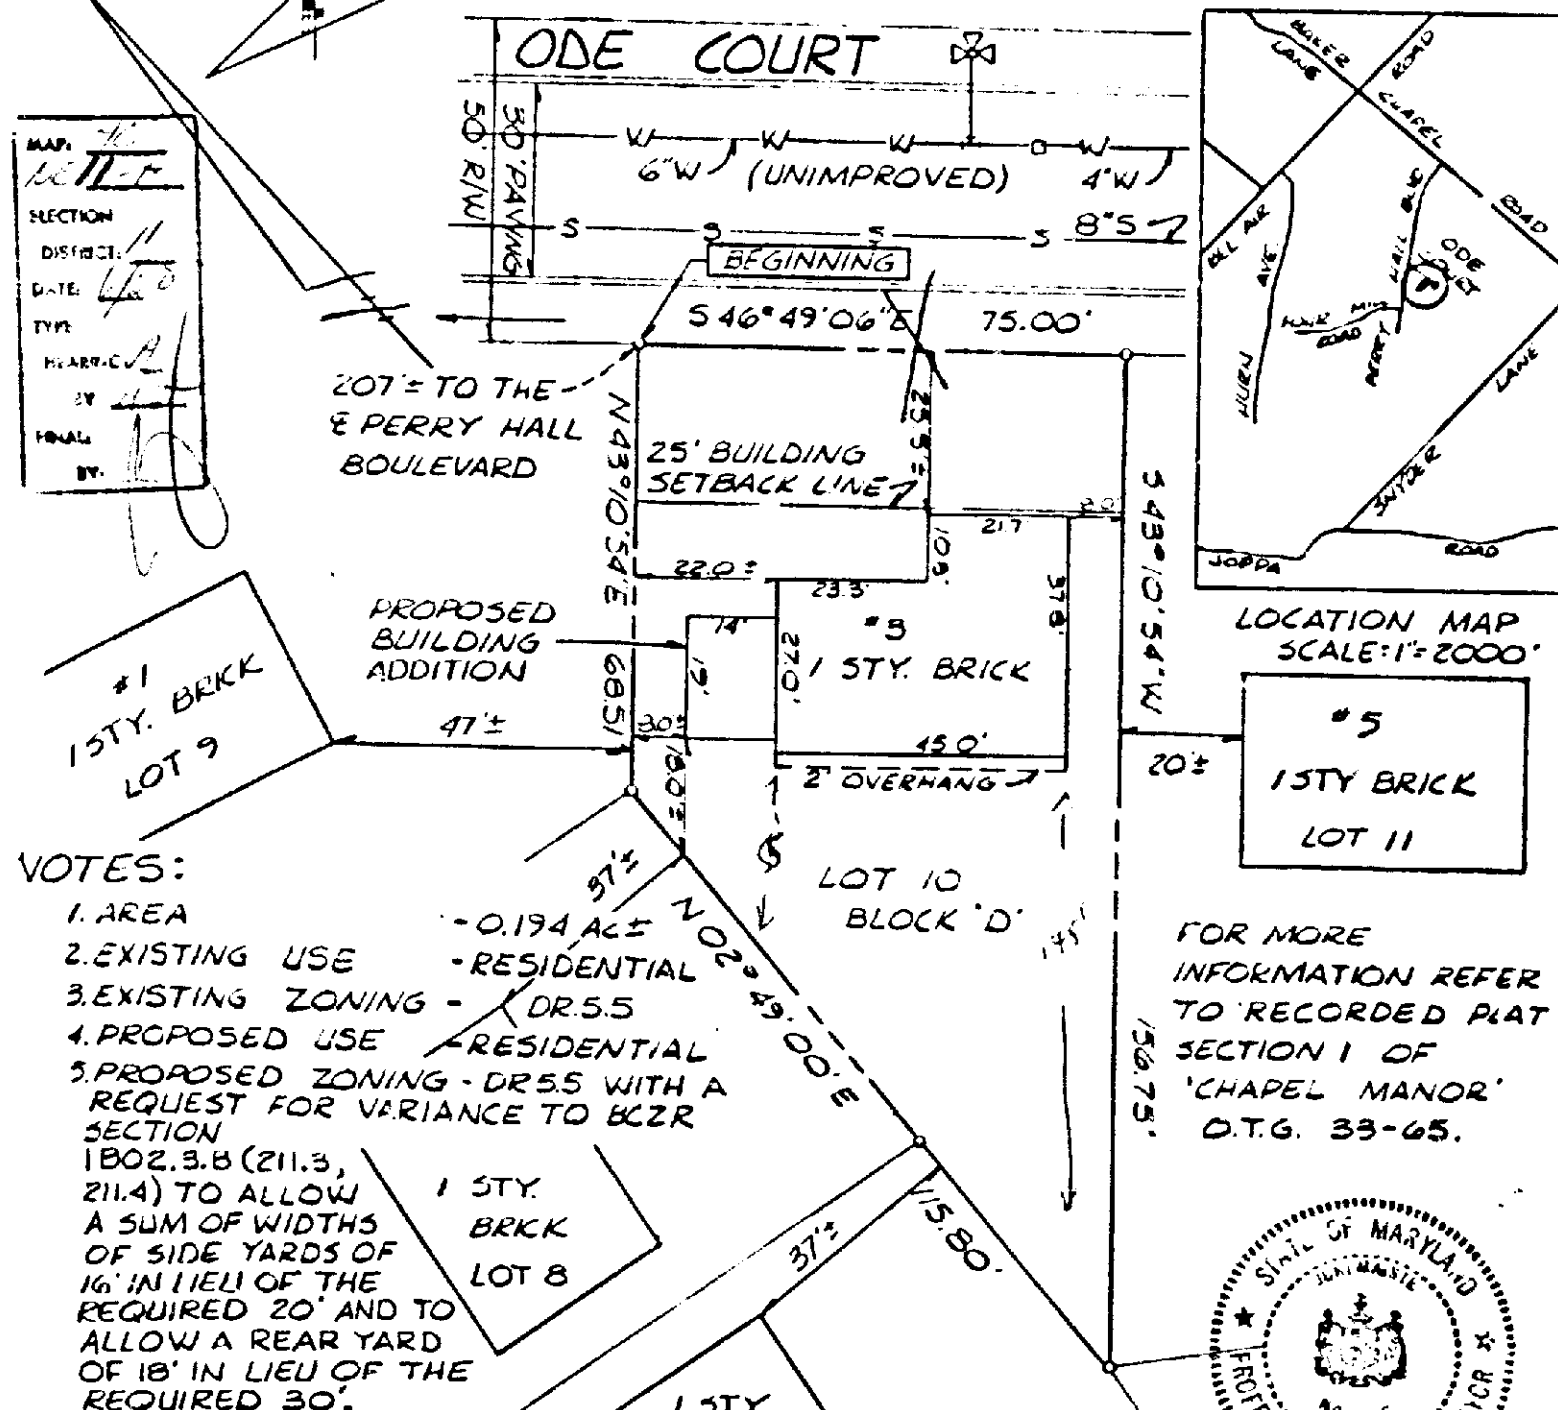 ODE COURT
50' R/W
30' PAVING
W W W W
6"W (UNIMPROVED) 4"W
S S S S 8"S
BEGINNING
S 46° 49' 06" E 75.00'
MAP:
ELECTION
DISTRICT: 11
DATE:
TYPE
HEARING
BY
FINAL:
BY:
207'± TO THE
℄ PERRY HALL
BOULEVARD
N 43° 10' 54" E 68.51'
25' BUILDING
SETBACK LINE
25.5'±
21.7
10.8'
22.0±
23.3'
37.8'
S 43° 10' 54" W
156.75'
PROPOSED
BUILDING
ADDITION
14'
19'
27.0'
1 STY. BRICK
45.0'
2' OVERHANG
18.0'±
#1
1 STY. BRICK
LOT 9
47'±
20'±
#5
1 STY BRICK
LOT 11
BAKER
LANE
ROAD
CHAPEL
ROAD
AVE
PERRY HALL BLVD
ODE
COURT
ROAD
SNYDER
LANE
JOPPA
ROAD
LOCATION MAP
SCALE: 1"=2000'
LOT 10
BLOCK 'D'
N 02° 49' 00" E
115.80'
37'±
37'±
VOTES:
1. AREA - 0.194 AC±
2. EXISTING USE - RESIDENTIAL
3. EXISTING ZONING - DR.5.5
4. PROPOSED USE - RESIDENTIAL
5. PROPOSED ZONING - DR5.5 WITH A
REQUEST FOR VARIANCE TO BCZR
SECTION
1B02.3.B (211.3,
211.4) TO ALLOW
A SUM OF WIDTHS
OF SIDE YARDS OF
16' IN LIEU OF THE
REQUIRED 20' AND TO
ALLOW A REAR YARD
OF 18' IN LIEU OF THE
REQUIRED 30'.
1 STY.
BRICK
LOT 8
1 STY
FOR MORE
INFORMATION REFER
TO RECORDED PLAT
SECTION 1 OF
'CHAPEL MANOR'
O.T.G. 33-65.
STATE OF MARYLAND